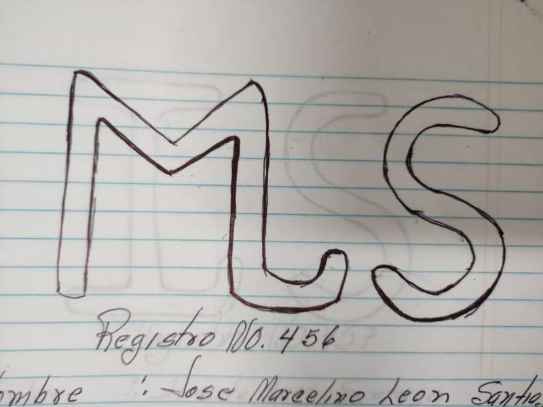 MLS
Registro No. 456
ombre : Jose Marcelino Leon Santia